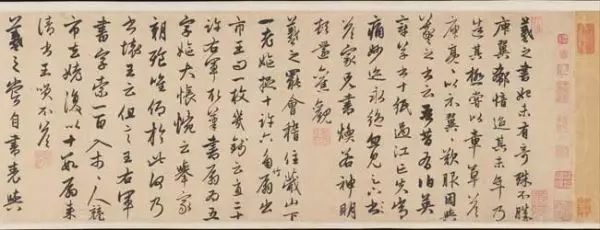 羲之書初未有奇殊不勝
庾翼郗愔迨其末年乃
造其極嘗以章草答
庾亮亮以示翼翼歎服因與
羲之書云吾昔有伯英
章草書十紙過江亡失常
痛妙迹永絕忽見足下書
答家兄書煥若神明
頓還舊觀
羲之罷會稽住蕺山下
一老姥捉十許六角竹扇出
市王曰一枚幾錢云直二十
許右軍取筆書扇扇為五
字姥大悵惋云舉家
朝飱唯仰於此何乃
書壞王云但言王右軍
書字索一百入市市人競
市去姥復以十數扇來
請書王笑不答
羲之嘗自書表與